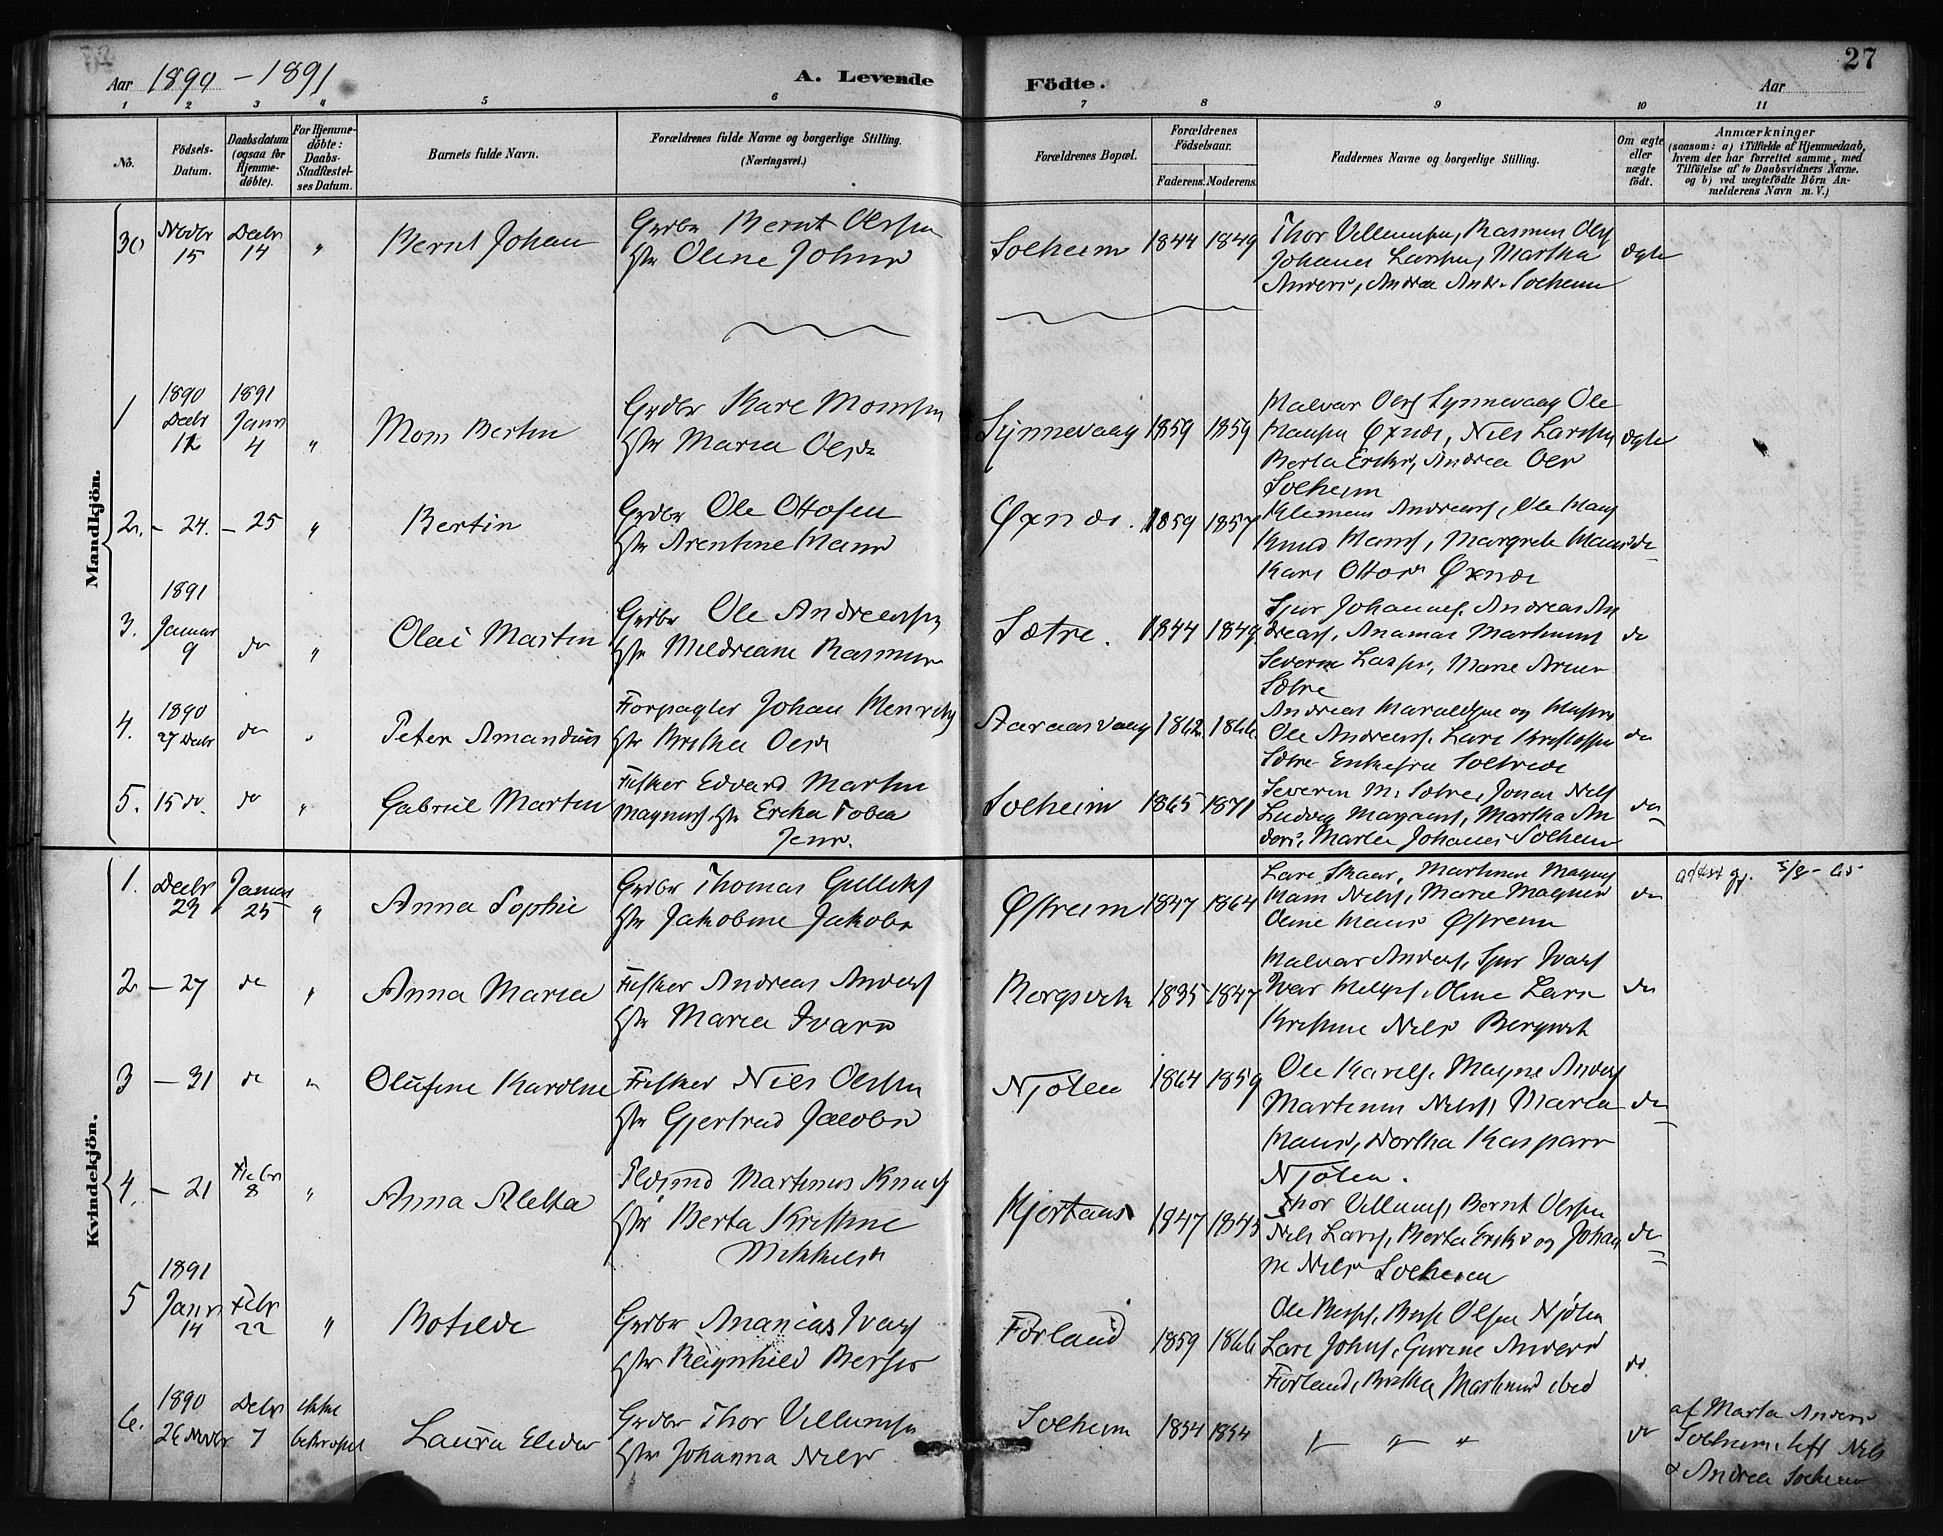 Aar 1890 - 1891
A. Levende
Födte.
Aar
27
1 2 3 4 5 6 7 8 9 10 11
No.
Födsels-
Datum.
Daabsdatum
(ogsaa for
Hjemme-
döbte).
For Hjemme-
döbte:
Daabs-
Stadfæstel-
ses Datum.
Barnets fulde Navn.
Forældrenes fulde Navne og borgerlige Stilling.
(Næringsvei.)
Forældrenes Bopæl.
Forældrenes
Födselsaar.
Faderens. Moderens.
Faddernes Navne og borgerlige Stilling.
Om ægte
eller
uægte
födt.
Anmærkninger
(saasom: a) i Tilfælde af Hjemmedaab,
hvem der har forrettet samme, med
Tilföielse af to Daabsvidners Navne.
og b) ved uægtefödte Börn An-
melderens Navn m. V.)
Mandkjön.
30 Novbr 15 Decbr 14 " Bernt Johan
Grdbr Bernt Olssen
Hstr Oline Johns
Solheim 1844 1849
Thor Villumsen, Rasmus Ols
Johannes Larssen, Martha
Anders, Andrea Andr. Solheim
ægte
1 1890 Decbr 12 1891 Janr 4 " Mons Bertin
Grdbr Kare Monssen
Hstr Maria Olsdr
Synnevaag 1859 1859
Halvar Ols Synnevaag Ole
Hansen Øxnæs, Nils Larssen
Berta Eriks, Andrea Ols
Solheim
ægte
2. - 24. - 25 " Bertin
Grdbr Ole Ottosen
Hstr Arentine Hans
Øxnæs. 1859 1857
Klemens Andreas, Ole Hans
Knud Hans, Margrete Hans
Kari Ottos Øxnæs
do
3. 1891 Januar 9 do " Olai Martin
Grdbr Ole Andreassen
Hstr Meldreane Rasmus
Sætre. 1844 1849
Sjur Johannes, Andreas An
dreas, Anamas Martinus
Severine Lasse, Marie Arne
Sætre
do
4. 1890 27 Decbr do " Peter Amandus
Forpagter Johan Henriks
Hstr Kristia Olsdr
Aaraasvaag 1862 1866
Andreas Haraldsen og Hustru
Ole Andreas, Lars Kristofsen
Sætre Enkefru Soltvedt
do
5. 15 do. do " Gabriel Martin
Fisker Edvard Martin
Magnus, Hstr Erika Tobea
Jens.
Solheim 1865 1871
Severin M. Sætre, Jonas Nils
Ludvig Magnus, Martha An
ders, Marta Johannes Solheim
do
Kvindekjön.
1. Decbr 29 Januar 25 " Anna Sophie
Grdbr Thomas Gulliks
Hstr Jakobine Jakobs
Østreim 1847 1864
Lars Skaar, Martinus Magnus
Hans Nils, Marie Magnus
Oline Hans Østreim
do
attest gj. 5/8 - 65
2 - 27 do " Anna Maria
Fisker Andreas Anders
Hstr Maria Ivars
Bergsvik 1835 1847
Halvar Anders, Sjur Ivars
Ivar Helges, Oline Lars
Kristine Nils Bergsvik
do
3 - 31 do " Olufine Karoline
Fisker Nils Olssen
Hstr Gjertrud Jacobs
Njøten 1864 1859
Ole Karels, Magne Anders
Martinus Nils, Maria
Hans, Dorthea Kaspars
Njøten.
do
4. - 21 Febr 8 " Anna Aletta
Pldsmd Martinus Knuds
Hstr Berta Kristine
Mikkelsdr
Hjertaas 1847 1845
Thor Villums, Bernt Olssen
Nils Lars, Berta Eriks og Johan
ne Nils Solheim
do
5 1891 Janr 14 Febr 22 " Botilde
Grdbr Ananias Ivars
Hstr Ragnhild Berses
Førland 1859 1866
Ole Berses, Berse Olsen Njøten
Lars Johns, Gurine Anders
Førland, Britha Martinus ibid
do.
6. 1890 26 Novbr Debr 7 ikke bekræftet Laura Elida
Grdbr Thor Villumsen
Hstr Johanna Nils
Solheim 1854 1854
" " "
do
af Marta Anders
Solheim, tilst Nils
& Andrea Solheim